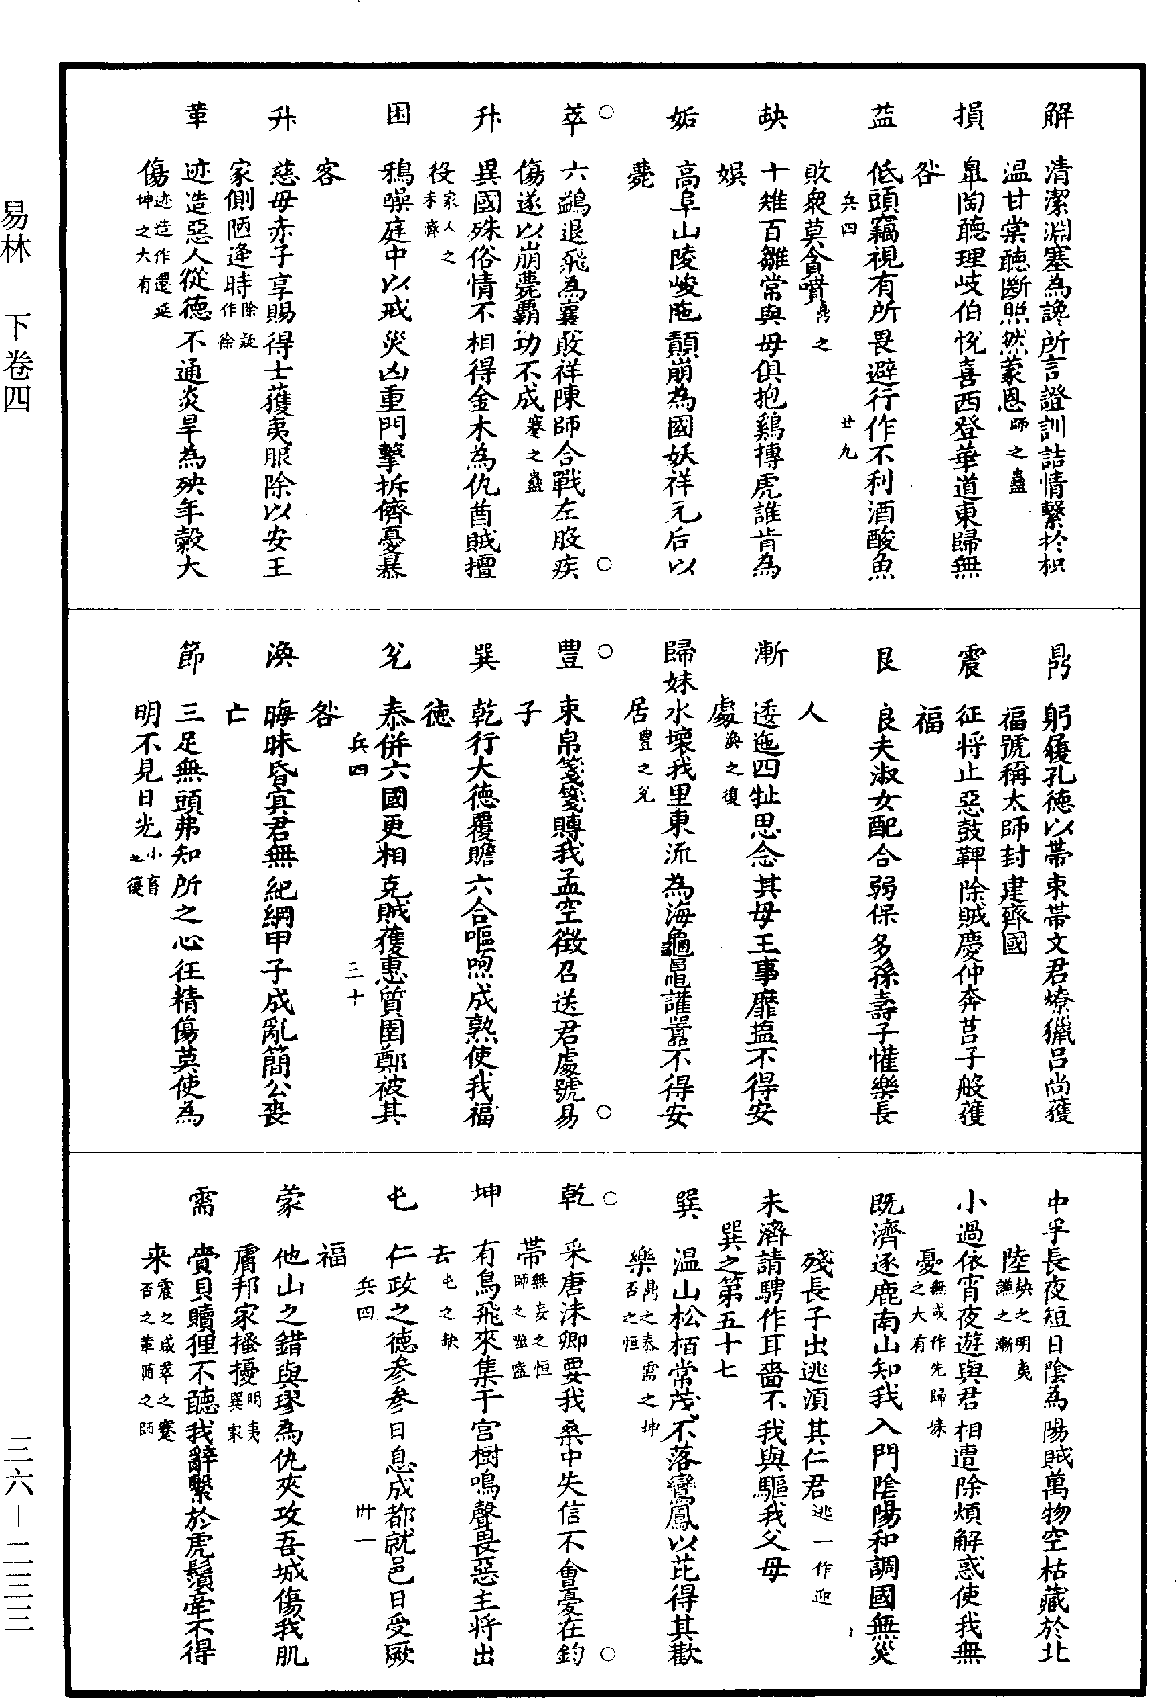 解 清潔淵塞為讒所言證訓詰情繫於枳
温甘棠聽斷照然蒙恩師之蠱
損 臯陶聽理岐伯悦喜西登華道東歸無
咎
益 低頭竊視有所畏避行作不利酒酸魚
敗衆莫貪嘗鼎之
兵四 廿九
夬 十雉百雛常與母俱抱鷄搏虎誰肯為
娯
姤 高阜山陵峻陁顛崩為國妖祥元后以
薨
○萃 六鷁退飛為襄敗祥陳師合戰左股疾○
傷遂以崩薨霸功不成蹇之蠱
升 異國殊俗情不相得金木為仇酋賊擅
役家人之未齊
困 鴉噪庭中以戒災凶重門擊柝備憂暴
客
升 慈母赤子享賜得士獲夷服除以安王
家側陋逢時除疑作徐
革 迹造惡人從德不通炎旱為殃年穀大
傷迹造作還延坤之大有
鼎 躬履孔德以帶束帶文君燎獵吕尚獲
福號稱太師封建齊國
震 征将止惡鼓鞞除賊慶仲奔莒子般獲
福
艮 良夫淑女配合弱保多孫壽子懽樂長
人
漸 逶迤四牡思念其母王事靡盬不得安
處渙之復
歸妹 水壞我里東流為海龜黽讙嚻不得安
居豊之兊
○豊 束帛箋箋賻我孟空徴召送君處號易○
子
巽 乾行大德覆贍六合嘔喣成熟使我福
徳
兊 泰併六國更相克賊獲惠質圉鄭被其
咎
兵四 三十
渙 晦昧昏冥君無紀綱甲子成亂簡公喪
亡
節 三足無頭弗知所之心狂精傷莫使為
明不見日光小畜之復
中孚 長夜短日陰為陽賊萬物空枯藏於北
陸缺之明夷謙之漸
小過 依宵夜遊與君相遭除煩解惑使我無
憂無或作先歸妹之大有
既濟 逐鹿南山知我入門陰陽和調國無災
殘長子出逃湏其仁君逃一作迎
未濟 請騁作耳嗇不我與驅我父母
巽之第五十七
巽 温山松栢常茂不落鸞鳳以芘得其歡
樂鼎之泰需之坤否之恒
○乾 采唐沬卿要我桑中失信不㑹憂在鈞○
帶無妄之恒師之噬嗑
坤 有鳥飛來集于宫樹鳴聲畏惡主将出
去屯之缺
屯 仁政之德参参日息成都就邑日受厥
福
兵四 卅一
蒙 他山之錯與璆為仇夾攻吾城傷我肌
膚邦家搔擾明夷巽家
需 賫貝贖貍不聽我辭繫於虎鬚牽不得
来震之咸萃之蹇否之革晒之師
易林 下卷四
三六—二三三